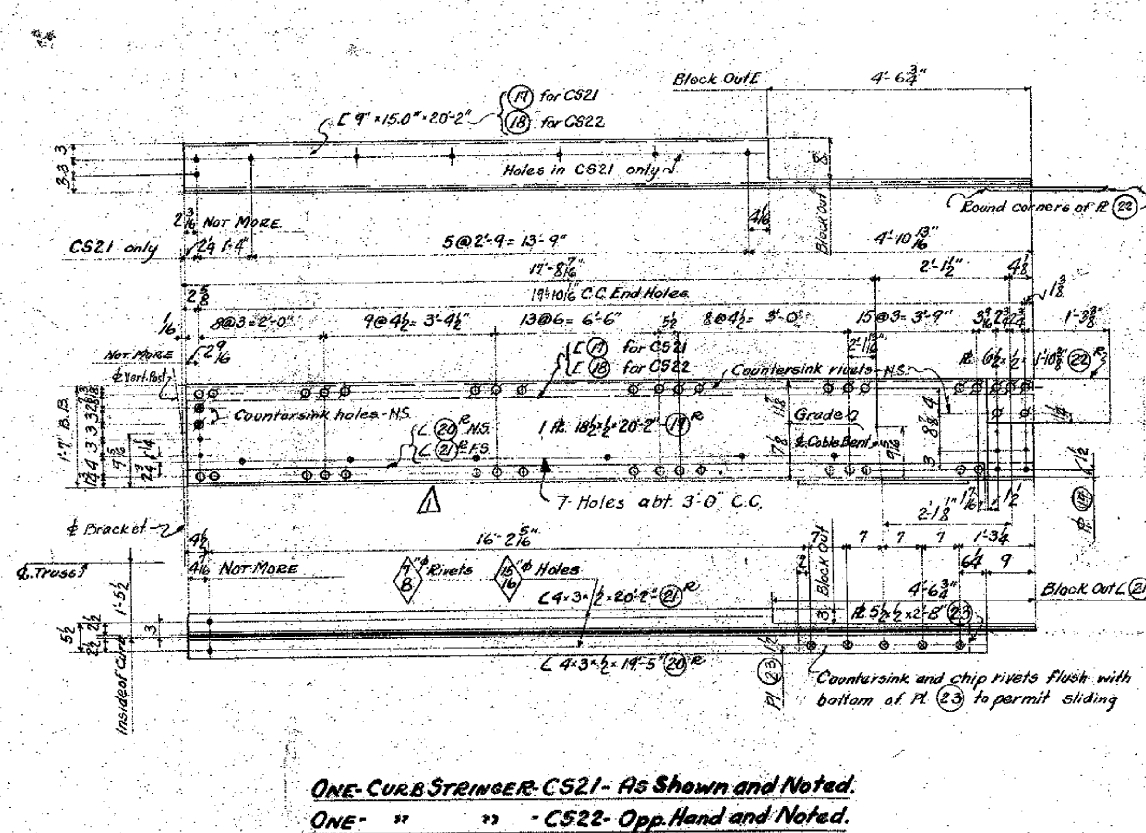 Block Out E
4'-6 3/4"
[ 9" × 15.0" × 20'-2"
(17) for CS21
(18) for CS22
3 3 3
Holes in CS21 only
Block Out
Round corners of Pl. (22)
2 3/16 NOT MORE
4 1/16
CS21 only
2 1/4 1'-4"
5@2'-9 = 13'-9"
4'-10 13/16
17'-8 7/16"
2'-1 1/2"
4 1/8
19'-10 1/16" C.C. End Holes
1 3/8
1/16
8@3=2'-0"
9@4 1/2= 3'-4 1/2"
13@6= 6'-6"
5 1/2
8@4 1/2= 3'-0"
15@3= 3'-9"
1'-3 3/8
NOT MORE
2 9/16
[ (17) for CS21
[ (18) for CS22
¢ Vert. Post
Countersink rivets-N.S.
1'-10 3/8" (22) R
1'-7" B.B.
Countersink holes-N.S.
∠ (20) R N.S.
∠ (21) R F.S.
1 Pl. 18 1/2 × 1/2 × 20'-2" (19) R
Grade
¢ Cable Bent
7 1/8
7-Holes abt. 3'-0" C.C.
1
2'-1 1/8"
1 7/16
¢ Bracket
4 1/2
16'-2 5/16"
7 7 7 7 1'-3 1/4
¢ Truss
4 7/16 NOT MORE
7/8 "φ Rivets
15/16 "φ Holes
Block Out
6 1/4 9
∠ 4×3×1/2×20'-2" (21) R
4'-6 3/4"
Block Out ∠ (21)
1'-5 1/2
Pl. 5 1/2×1/2×2'-8" (23)
5 1/2
2 1/2
3
∠ 4×3×1/2×19'-5" (20) R
Inside of Curb
Pl (23)
1 1/2
Countersink and chip rivets flush with
bottom of Pl. (23) to permit sliding
ONE-CURB STRINGER-CS21-As Shown and Noted.
ONE- " " -CS22-Opp. Hand and Noted.